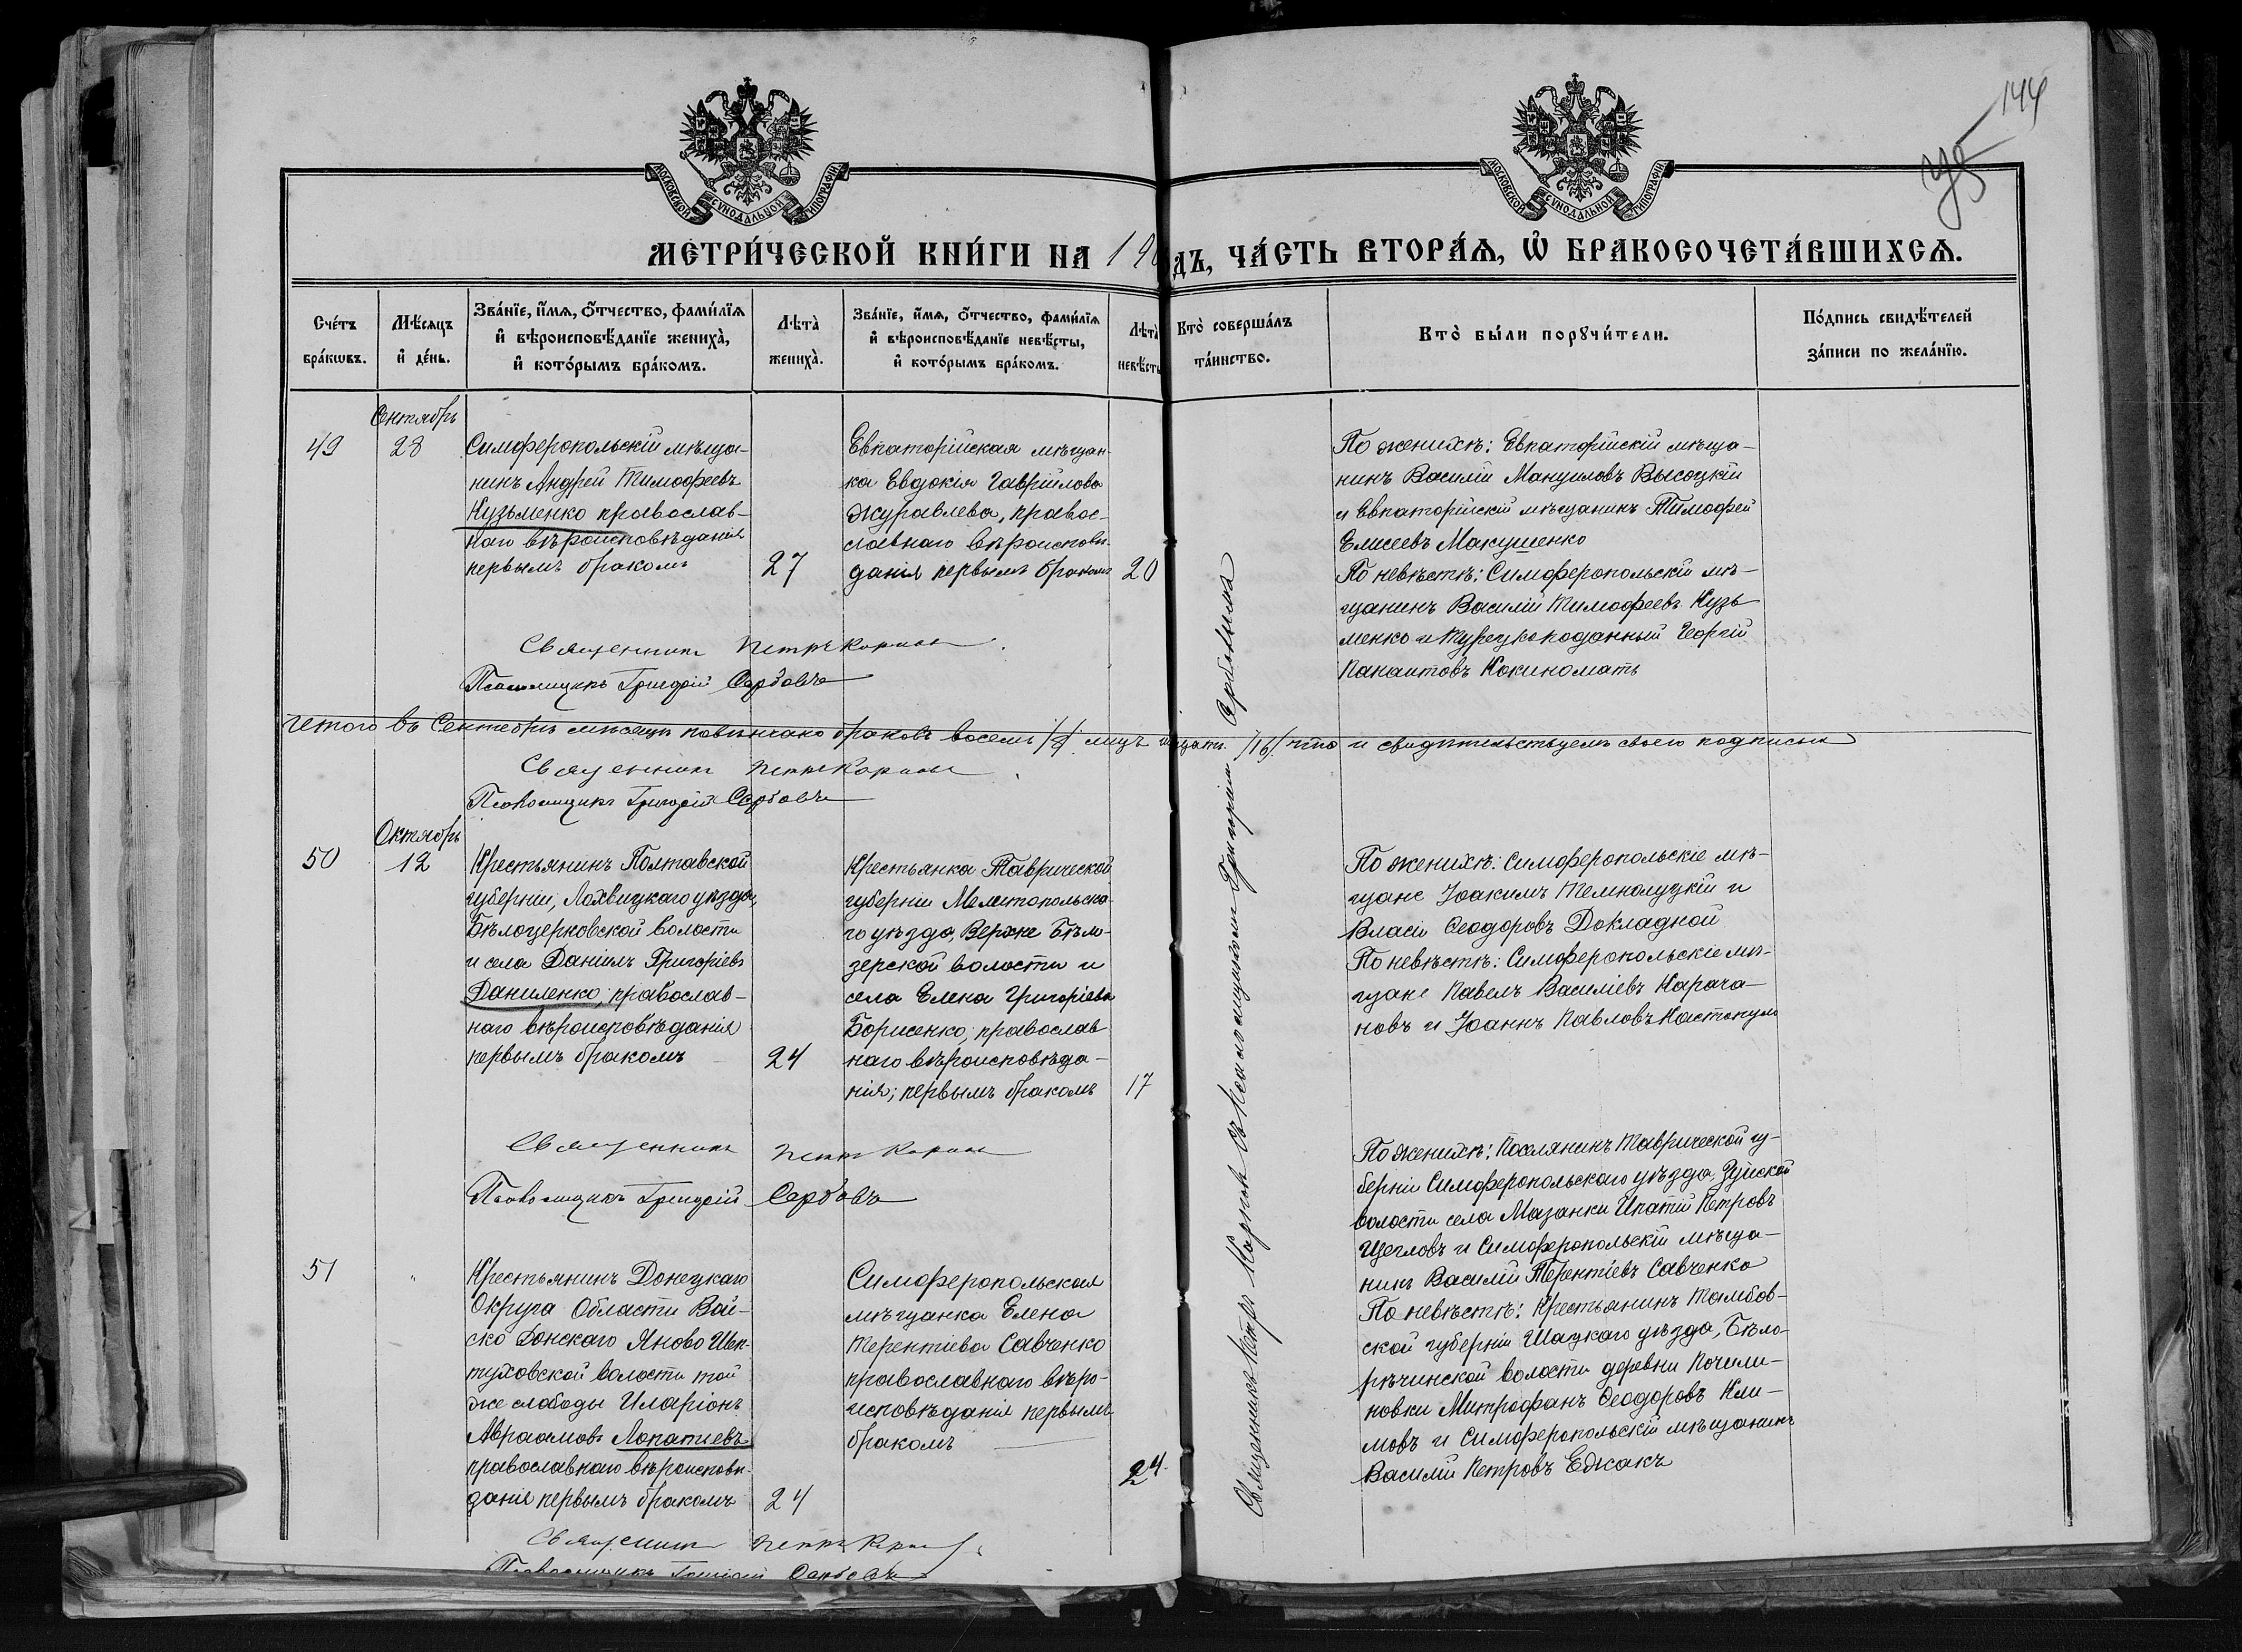 144
МОСКОВСКОЙ СУНОДАЛЬНОЙ ТИПОГРАФІИ
МОСКОВСКОЙ СУНОДАЛЬНОЙ ТИПОГРАФІИ
МЕТРИ́ЧЕСКОЙ КНИ́ГИ НА 190
ДЪ, ЧА́СТЬ ВТОРА́Я, Ѡ БРАКОСОЧЕТА́ВШИХСЯ.
Сче́тъ бра́кѡвъ.
Мѣ́сяцъ и де́нь.
Зва́нїе, и҆́мѧ, ѻ҆́тчество, фами́лїѧ
и҆ вѣроисповѣ́данїе жениха̀,
и҆ кото́рымъ бра́комъ.
Лѣта̀ жениха̀.
Зва́нїе, и҆́мѧ, ѻ҆́тчество, фами́лїѧ
и҆ вѣроисповѣ́данїе невѣ́сты,
и҆ кото́рымъ бра́комъ.
Лѣта̀ невѣ́сты
Кто̀ соверша́лъ
та́инство.
Кто̀ бы́ли порꙋчи́тели.
По́дпись свидѣ́телей
за́писи по жела́нїю.
Сентябрь
49
28
Симферопольскій мѣща-
нинъ Андрей Тимофеевъ
Кузьменко православ-
наго вѣроисповѣданія
первымъ бракомъ
27
Евпаторійская мѣщан-
ка Евдокія Гавріилова
Журавлева, правос-
славнаго вѣроисповѣ-
данія первымъ бракомъ
20
По женихѣ: Евпаторійскій мѣща-
нинъ Василій Мануиловъ Высоцкій
и Евпаторійскій мѣщанинъ Тимофей
Елисеевъ Макушенко
По невѣстѣ: Симферопольскій мѣ-
щанинъ Василій Тимофеевъ Кузь
менко и Турецкоподанный Георгій
Панаитовъ Кокиномать
Священникъ Петръ Карповъ
Псаломщикъ Григорій Сербовъ
Итого въ Сентябрѣ мѣсяцѣ повѣнчано браковъ восемь /8/ лицъ /16/ что и свидѣтельствуемъ своею подписью
Священникъ Петръ Карповъ
Псаломщикъ Григорій Сербовъ
Октябрь
50
12
Крестьянинъ Полтавской
губерніи, Лохвицкаго уѣзда,
Бѣлоцерковской волости
и села Даніилъ Григоріевъ
Даниленко, православ-
наго вѣроисповѣданія
первымъ бракомъ
24
Крестьянка Таврической
губерніи Мелитопольска-
го уѣзда, Верхне Бѣло-
зерской волости и
села Елена Григоріева
Борисенко, православ
наго вѣроисповѣда-
нія; первымъ бракомъ
17
По женихѣ: Симферопольскіе мѣ-
щане Іоакимъ Темнолуцкій и
Власій Феодоровъ Докладной
По невѣстѣ: Симферопольскіе мѣ-
щане Павелъ Василіевъ Карача-
новъ и Іоаннъ Павловъ
Священникъ Петръ Карповъ
Псаломщикъ Григорій Сербовъ
51
"
Крестьянинъ Донецкаго
Округа Области Вой-
ска Донскаго Яново Шеп-
туховской волости той
же слободы Иларіонъ
Авраамовъ Лопатіевъ
православнаго вѣроисповѣ-
данія первымъ бракомъ
24
Симферопольская
мѣщанка Елена
Терентіева Савченко
православнаго вѣро-
исповѣданія первымъ
бракомъ
24
По женихѣ: Поселянинъ Таврической гу-
берніи Симферопольскаго уѣзда Зуйской
волости села Мазанки Ипатій Петровъ
Щегловъ и Симферопольскій мѣща-
нинъ Василій Терентіевъ Савченко
По невѣстѣ: Крестьянинъ Тамбов-
ской губерніи Шацкаго уѣзда, Бѣло-
рѣчинской волости деревни Почили-
новки Митрофанъ Феодоровъ Кли-
мовъ и Симферопольскій мѣщанинъ
Василій Петровъ Еджакъ
Священникъ Петръ Карповъ
Псаломщикъ Григорій Сербовъ
Священникъ Петръ Карповъ съ Псаломщикомъ Григоріемъ Сербовымъ